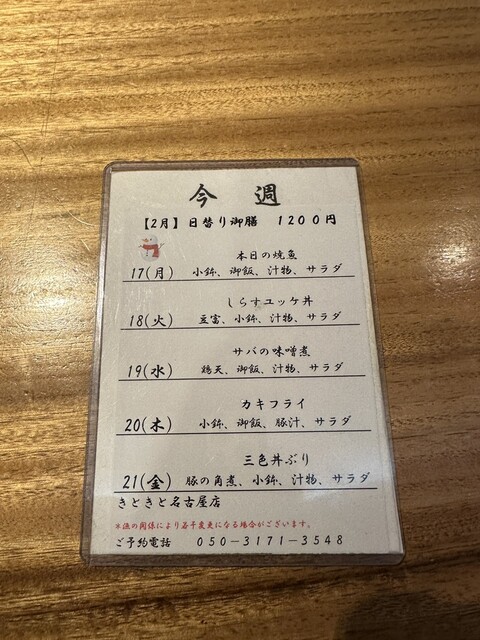 今週
【2月】日替り御膳 1200円
本日の焼魚
17(月) 小鉢、御飯、汁物、サラダ
しらすユッケ丼
18(火) 豆富、小鉢、汁物、サラダ
サバの味噌煮
19(水) 鶏天、御飯、汁物、サラダ
カキフライ
20(木) 小鉢、御飯、豚汁、サラダ
三色丼ぶり
21(金) 豚の角煮、小鉢、汁物、サラダ
きときと名古屋店
*漁の関係により若干変更になる場合がございます。
ご予約電話 050-3171-3548